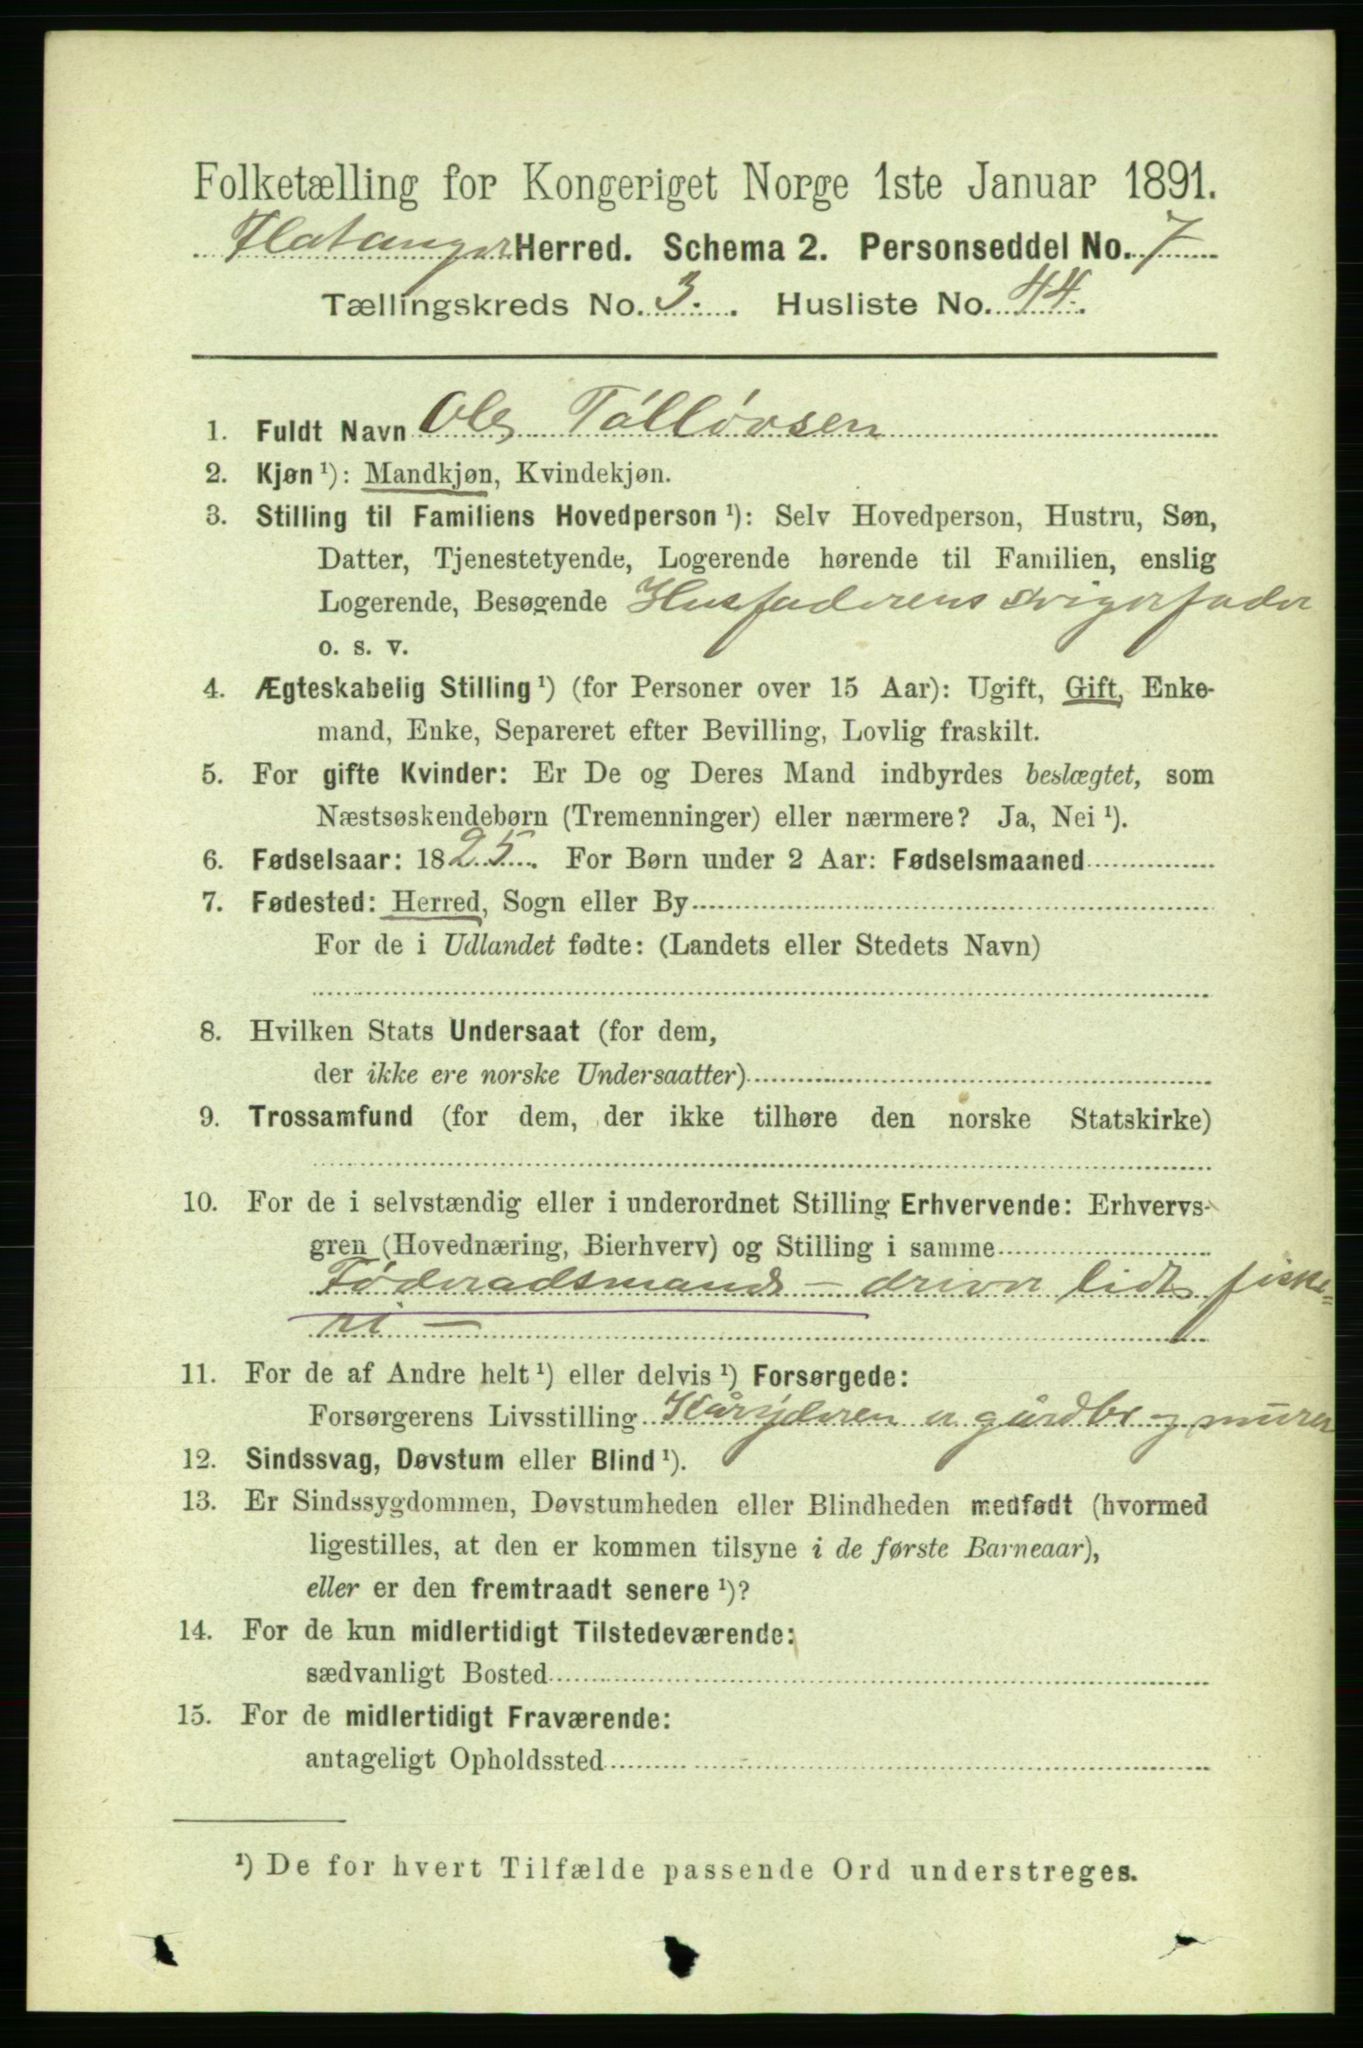 Folketælling for Kongeriget Norge 1ste Januar 1891.
Flatanger Herred. Schema 2. Personseddel No. 7
Tællingskreds No. 3. Husliste No. 44.
1. Fuldt Navn Ole Tølløvsen
2. Kjøn ¹): Mandkjøn, Kvindekjøn.
3. Stilling til Familiens Hovedperson ¹): Selv Hovedperson, Hustru, Søn,
Datter, Tjenestetyende, Logerende hørende til Familien, enslig
Logerende, Besøgende Husfaderens svigerfader
o. s. v.
4. Ægteskabelig Stilling ¹) (for Personer over 15 Aar): Ugift, Gift, Enke-
mand, Enke, Separeret efter Bevilling, Lovlig fraskilt.
5. For gifte Kvinder: Er De og Deres Mand indbyrdes beslægtet, som
Næstsøskendebørn (Tremenninger) eller nærmere? Ja, Nei ¹).
6. Fødselsaar: 1825. For Børn under 2 Aar: Fødselsmaaned
7. Fødested: Herred, Sogn eller By
For de i Udlandet fødte: (Landets eller Stedets Navn)
8. Hvilken Stats Undersaat (for dem,
der ikke ere norske Undersaatter)
9. Trossamfund (for dem, der ikke tilhøre den norske Statskirke)
10. For de i selvstændig eller i underordnet Stilling Erhvervende: Erhvervs-
gren (Hovednæring, Bierhverv) og Stilling i samme
Føderadsmand – driver lidt fiske=
ri –
11. For de af Andre helt ¹) eller delvis ¹) Forsørgede:
Forsørgerens Livsstilling Kårÿderen er gårdbr og murer
12. Sindssvag, Døvstum eller Blind ¹).
13. Er Sindssygdommen, Døvstumheden eller Blindheden medfødt (hvormed
ligestilles, at den er kommen tilsyne i de første Barneaar),
eller er den fremtraadt senere ¹)?
14. For de kun midlertidigt Tilstedeværende:
sædvanligt Bosted
15. For de midlertidigt Fraværende:
antageligt Opholdssted
¹) De for hvert Tilfælde passende Ord understreges.